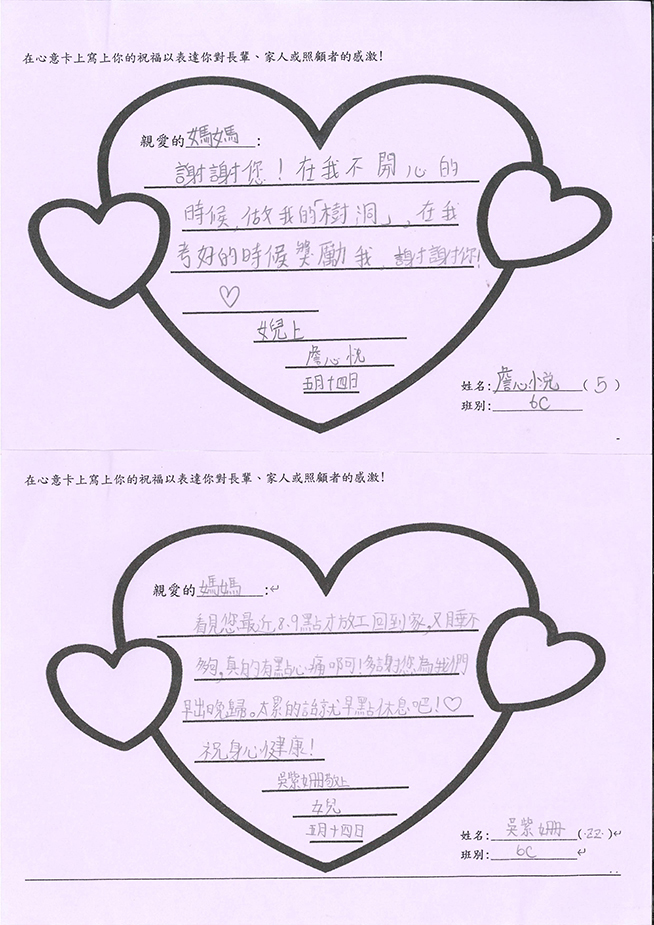 在心意卡上寫上你的祝福以表達你對長輩、家人或照顧者的感激!
親愛的媽媽:
謝謝您!在我不開心的
時候,做我的「樹洞」,在我
考好的時候獎勵我,謝謝你!
♡
女兒上
詹心悅
五月十四日
姓名:詹心悅(5)
班別:6C
在心意卡上寫上你的祝福以表達你對長輩、家人或照顧者的感激!
親愛的媽媽:
看見您最近8.9點才放工回到家,又睡不
夠,真的有點心痛啊!多謝您為我們
早出晚歸。太累的話就早點休息吧!♡
祝身心健康!
吳紫姍敬上
女兒
五月十四日
姓名:吳紫姍(22)
班別:6C